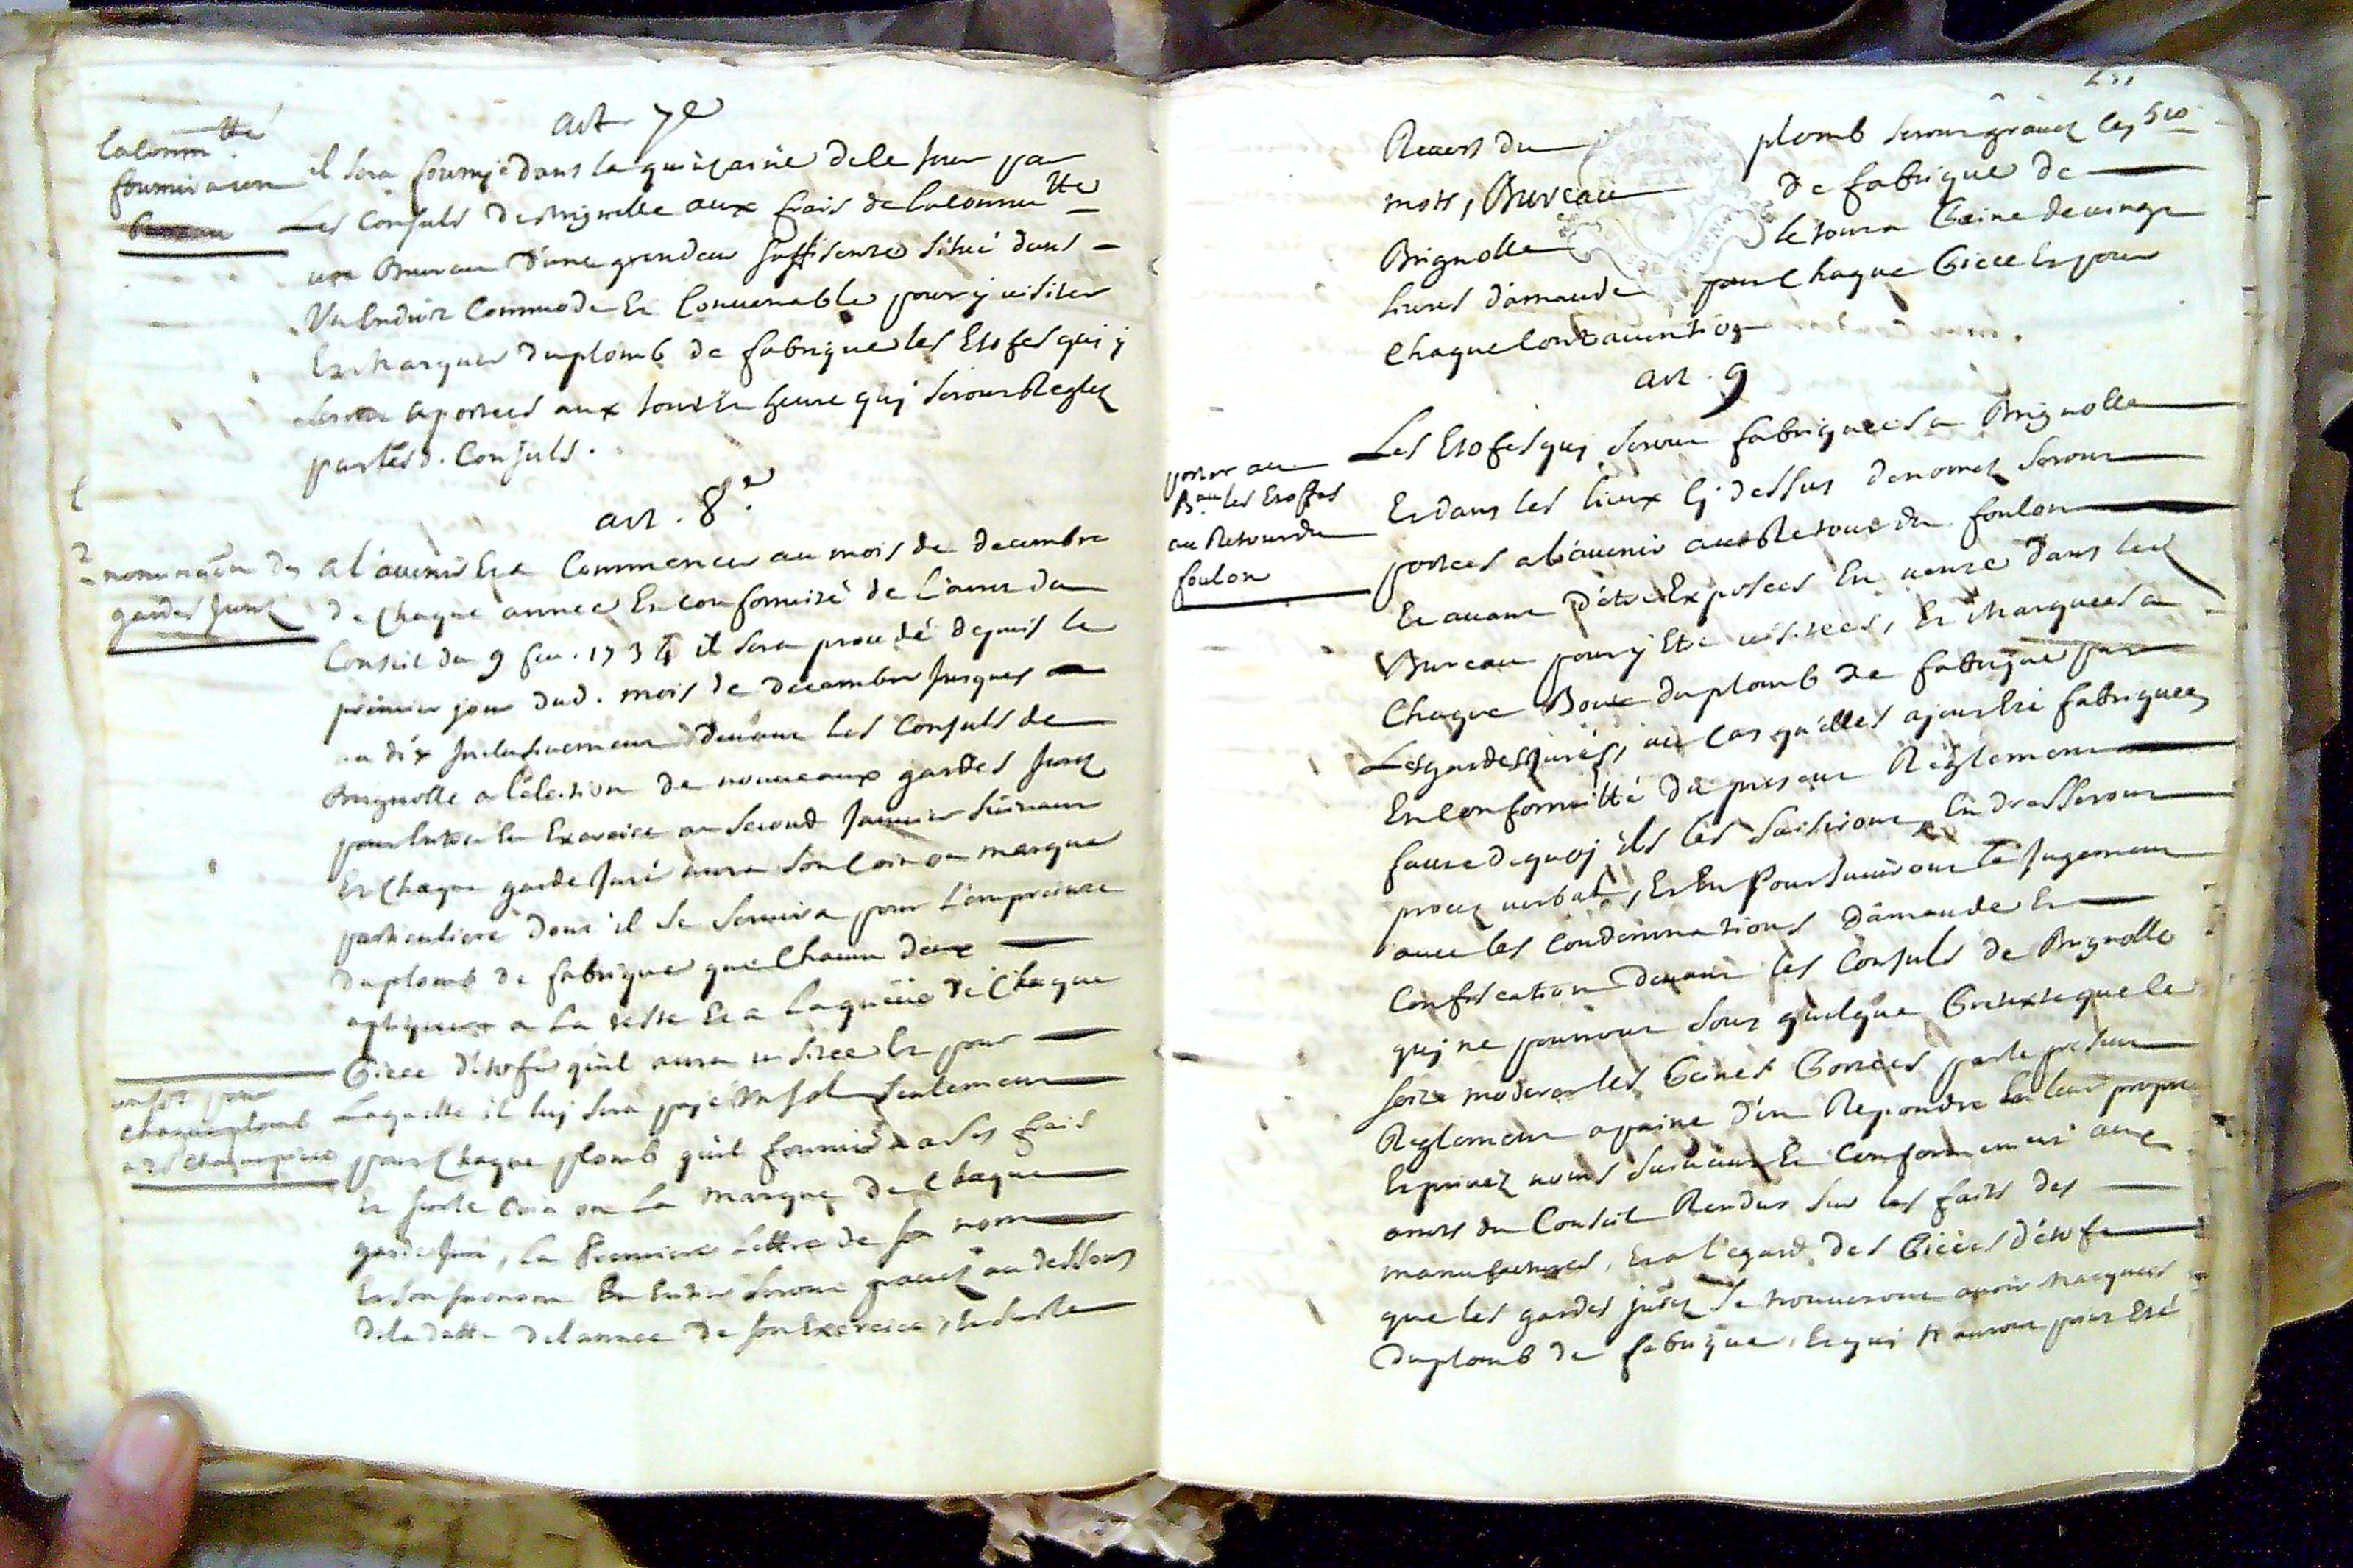 art. 7e
la comm.tté
fournira un
bureau
il sera fourny dans la quinzaine de le jour par
Les Consuls de Brignolle aux frais de la commu.tté
un Bureau d'une grandeur suffisente situé dans
Un Endroit Commode Et Convenable pour y visiter
Et Marquer du plomb de fabrique les Etofes qui y
seront aportées aux jour Et heure quj seront Reglez
par lesd. Consuls.
art. 8e
nomination des
gardes Jurez
a l'avenir Et a Commencer au mois de decembre
de Chaque année En conformité de L'arret du
Conseil du 9 fev. 1734 il sera procedé depuis le
premier jour dud. mois de decembre Jusques
au dix Inclusivement devant les Consuls de
Brignolle a l'election de nouveaux gardes Jurez
pour Entrer En Exercice au second Janvier suivant
Et Chaque garde Juré aura son Coin ou marque
particuliere dont il se servira pour L'empreinte
du plomb de fabrique que Chacun deux
apliquera a La teste Et a La queüe de Chaque
Piece d'etofe qu'il aura visitée Et pour
un sol pour
chaque plomb
Laquelle il luj sera payé Un sol seulement
pour Chaque plomb qu'il fournira a ses frais
Et sur le Coin ou La Marque de Chaque
garde Juré, La Premiere Lettre de son nom
Et son surnom En Entier seront gravez au dessous
de la datte de l'annee de son Exercice, Et sur le
Revers du plomb seront gravez les
mots, Bureau de fabrique de
Brignolle le tout a Peine de vingt
livres d'amande pour Chaque Piece Et pour
Chaque Contravention
art. 9
porter au
B.au les Etoffes
au Retour du
foulon
Les Etofes quj seront fabriquées a Brignolle
Et dans les lieux Cy dessus denomez seront
portées a l'avenir au Retour du foulon
Et avant d'etre Exposées En vente dans led
Bureau pour y Etre visitées, Et Marquées a
Chaque Bout du plomb de fabrique par
Les gardes Jurés, au Cas qu'elles ayent Eté fabriquées
En Conformitté du present Reglement
faute de quoy ils les saisiront, En dresseront
procez verbal, Et En Poursuivront le Jugement
avec les Condamnations d'amande Et
Confiscation devant les Consuls de Brignolle
quj ne pourront sous quelque Pretexte que le
soit moderer les Peines Portées par le present
Reglement a peine d'en Repondre En leur propre
Et privez noms suivant Et Conformement aux
arrets du Conseil Rendus sur les faits des
manufactures, Et a l'egard des Pieces d'etofe
que les gardes jurez se trouveront avoir Marquées
du plomb de fabrique, Et quj N'auront point Eté